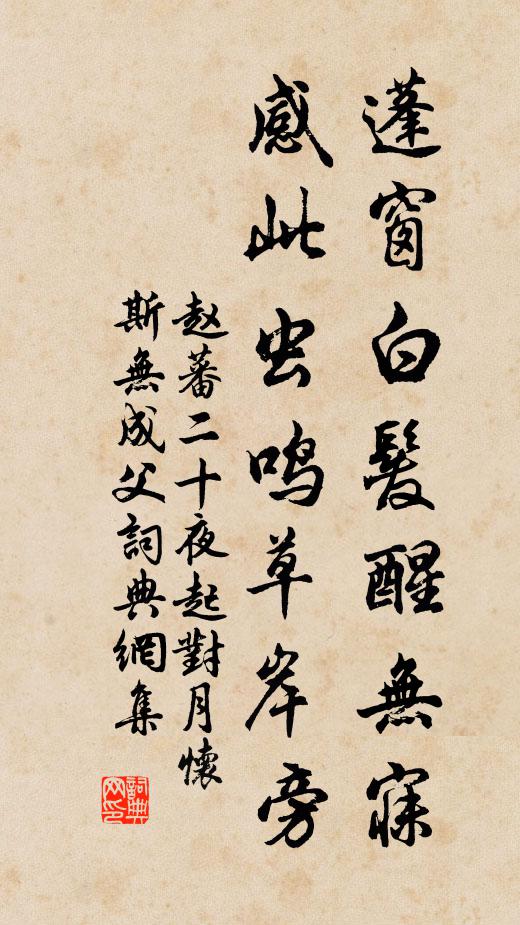 蓬窗白髮醒無寐
感此虫鳴草岸旁
赵蕃二十夜起對月懷
斯無成父詞典網集
詞典
网印